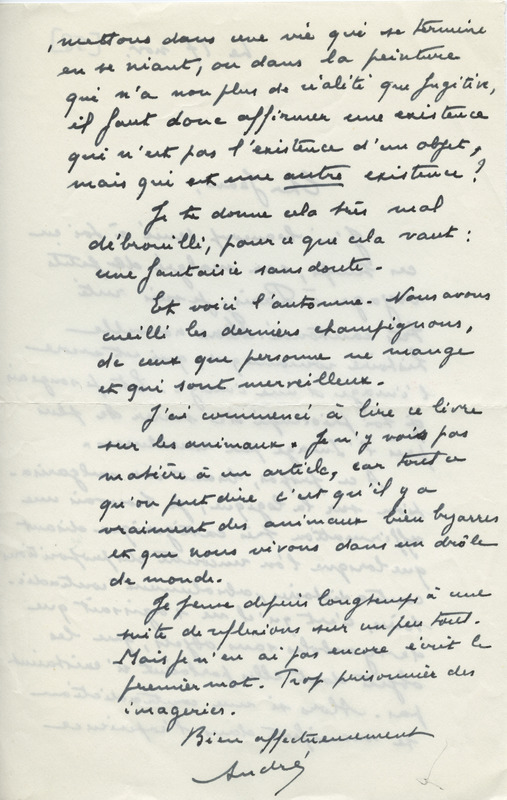 , mettons dans une vie qui se termine
en se niant, ou dans la peinture
qui n'a non plus de réalité que fugitive,
il faut donc affirmer une existence
qui n'est pas l'existence d'un objet,
mais qui est une autre existence ?
Je te donne cela très mal
débrouillé, pour ce que cela vaut :
une fantaisie sans doute.
Et voici l'automne. Nous avons
cueilli les derniers champignons,
de ceux que personne ne mange
et qui sont merveilleux.
J'ai commencé à lire ce livre
sur les animaux. Je n'y vois pas
matière à un article, car tout ce
qu'on peut dire c'est qu'il y a
vraiment des animaux bien bizarres
et que nous vivons dans un drôle
de monde.
Je pense depuis longtemps à une
suite de réflexions sur un peu tout.
Mais je n'en ai pas encore écrit le
premier mot. Trop prisonnier des
imageries.
Bien affectueusement
André